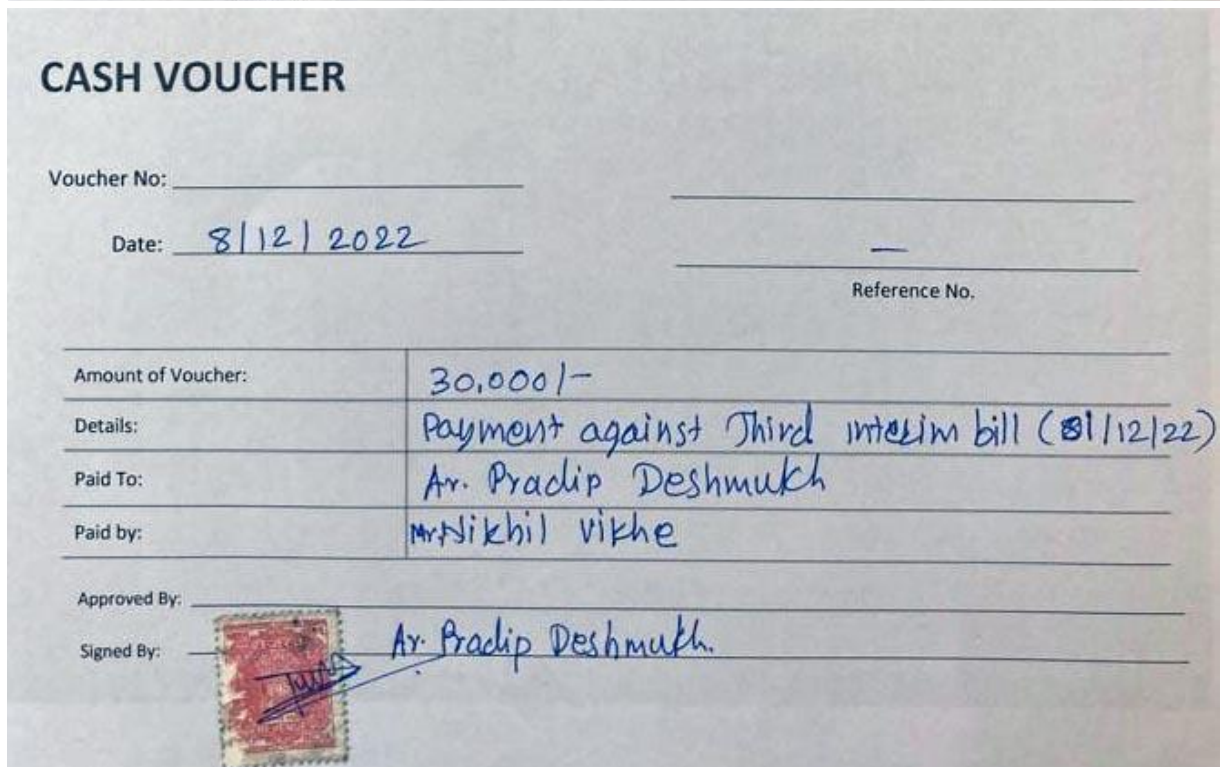 CASH VOUCHER
Voucher No:
Date: 8/12/2022
—
Reference No.
Amount of Voucher: 30,000/-
Details: Payment against Third interim bill (1/12/22)
Paid To: Ar. Pradip Deshmukh
Paid by: Mr. Nikhil Vikhe
Approved By:
Signed By: Ar. Pradip Deshmukh.